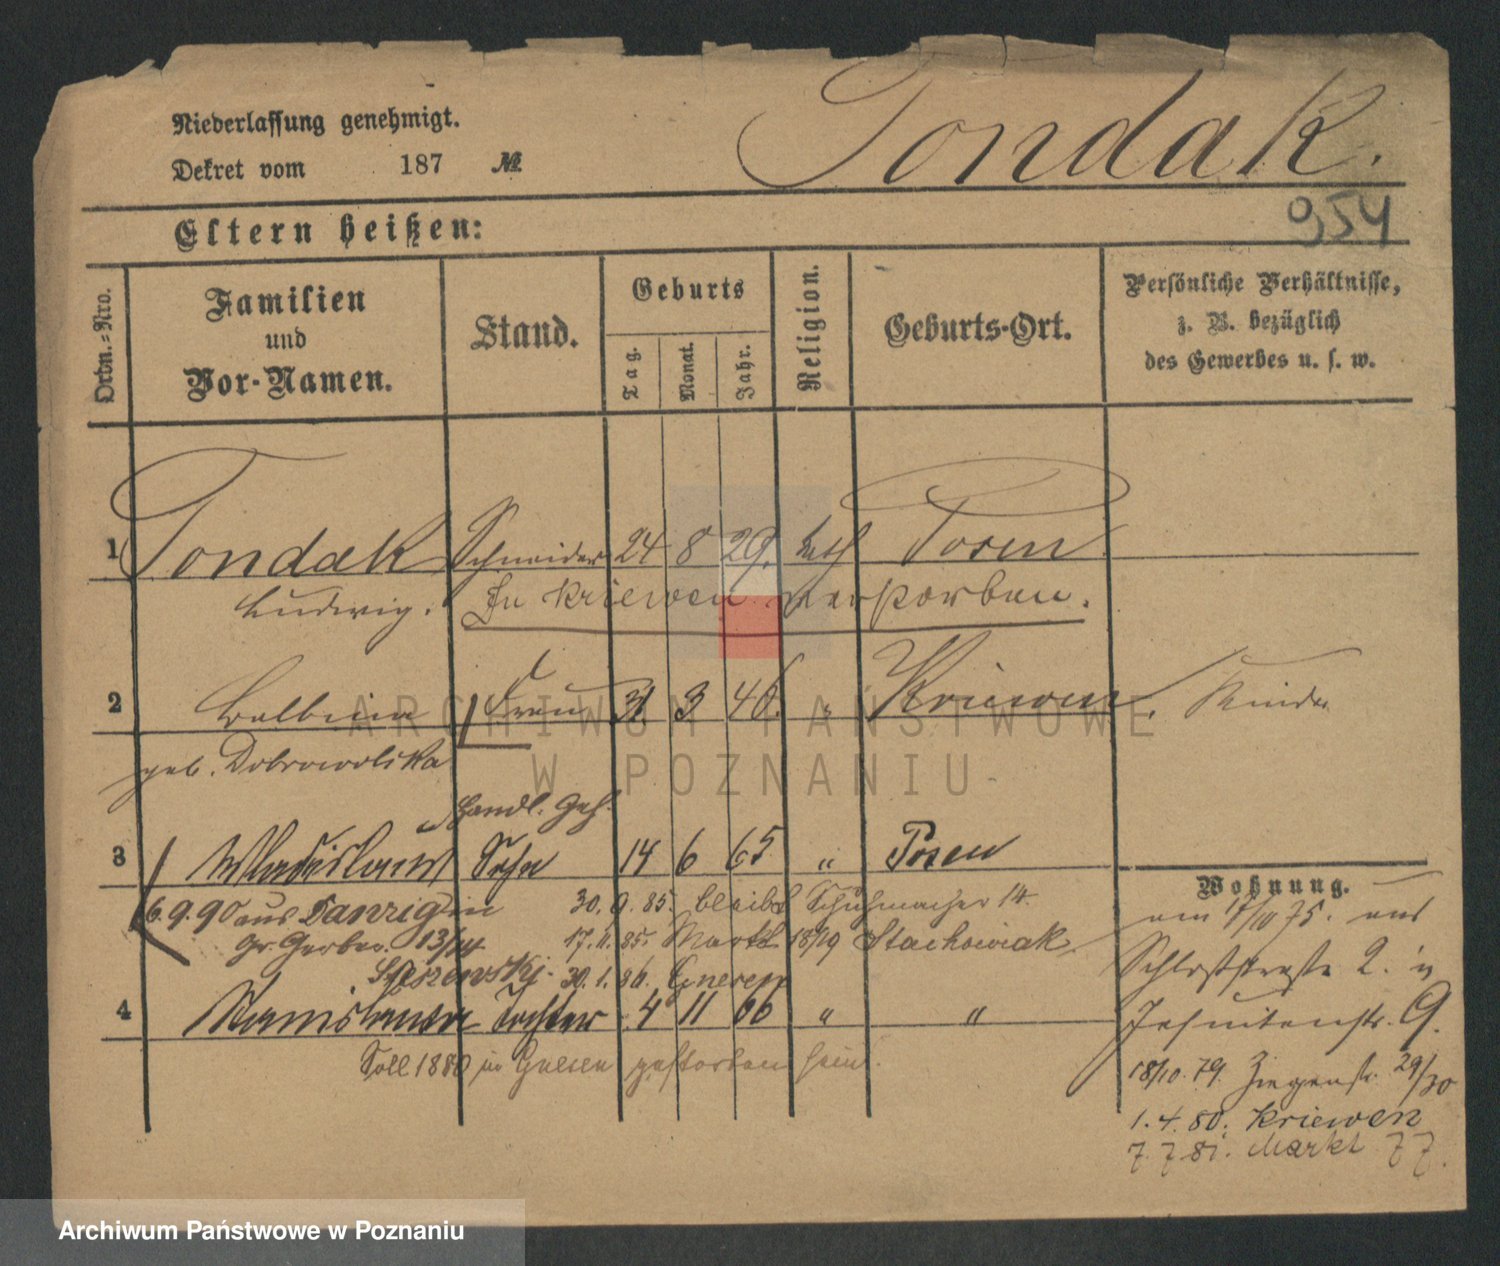 Niederlassung genehmigt.
Dekret vom 187 №
Tondak.
954
Eltern heißen:
Ordn.-Nro.
Familien
und
Vor-Namen.
Stand.
Geburts
Tag.
Monat.
Jahr.
Religion.
Geburts-Ort.
Persönliche Verhältnisse,
z. B. bezüglich
des Gewerbes u. s. w.
1 Tondak Schneider 24 8 29. kath Posen
Ludwig. In Kriewen verstorben.
2 Balbina Frau 31 3 46. " Kriewen. Kinder
geb. Dobrowolska
Handl. Geh.
3 Wladislaus Sohn 14 6 65 " Posen
Wohnung.
6.9.90 aus Danzig in 30.9.85. bleibt Schuhmacher 14.
Gr. Gerber. 13/14 17.11.85. Markt 18/19 Stachowiak.
30.1.86. Gnesen
4 Stanislawa Tochter 4 11 66 " "
Soll 1880 in Gnesen gestorben sein.
am 17/10 75. aus
Schloßstraße 2. in
Jesuitenstr. 9.
18/10. 79. Ziegenstr. 29/30
1. 4. 80. Kriewen
7. 7. 81. Markt 77.
ARCHIWUM PAŃSTWOWE
W POZNANIU
Archiwum Państwowe w Poznaniu